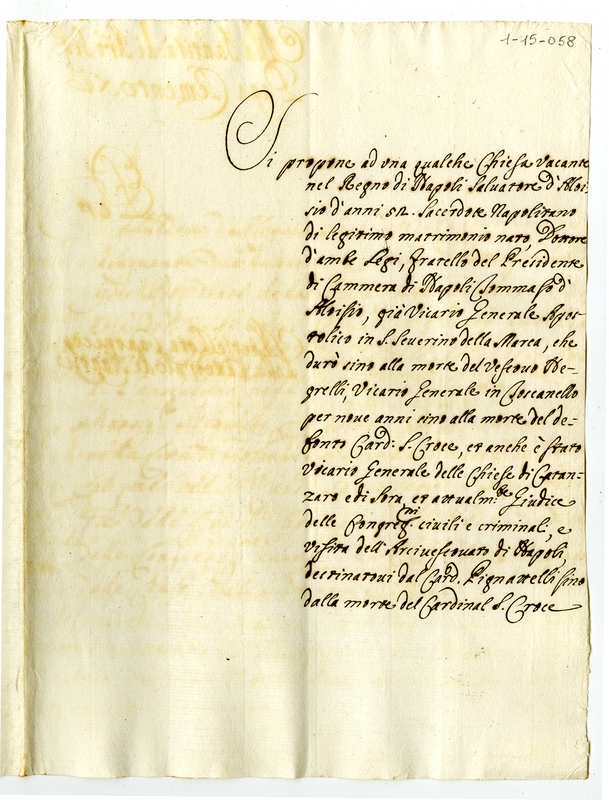 1-15-058
Si propone ad una qualche Chiesa vacante
nel Regno di Napoli Salvatore d'Aloi-
sio d'anni 52. Sacerdote Napolitano
di legitimo matrimonio nato, Dottore
d'ambe Legi, fratello del Presidente
di Cammera di Napoli Tommaso d'
Aloisio, già Vicario Generale Apos-
tolico in S. Severino della Marca, che
durò sino alla morte del Vescovo Ne-
grelli, Vicario Generale in Toscanello
per nove anni sino alla morte del de-
fonto Card: S. Croce, et anche è stato
Vicario Generale delle Chiese di Catan-
zaro e di Sora, et attualm:te Giudice
delle Congreg:ni civili e criminal:, e
visita dell'Arcivescovato di Napoli,
destinatovi dal Card. Pignattelli sino
dalla morte del Cardinal S. Croce